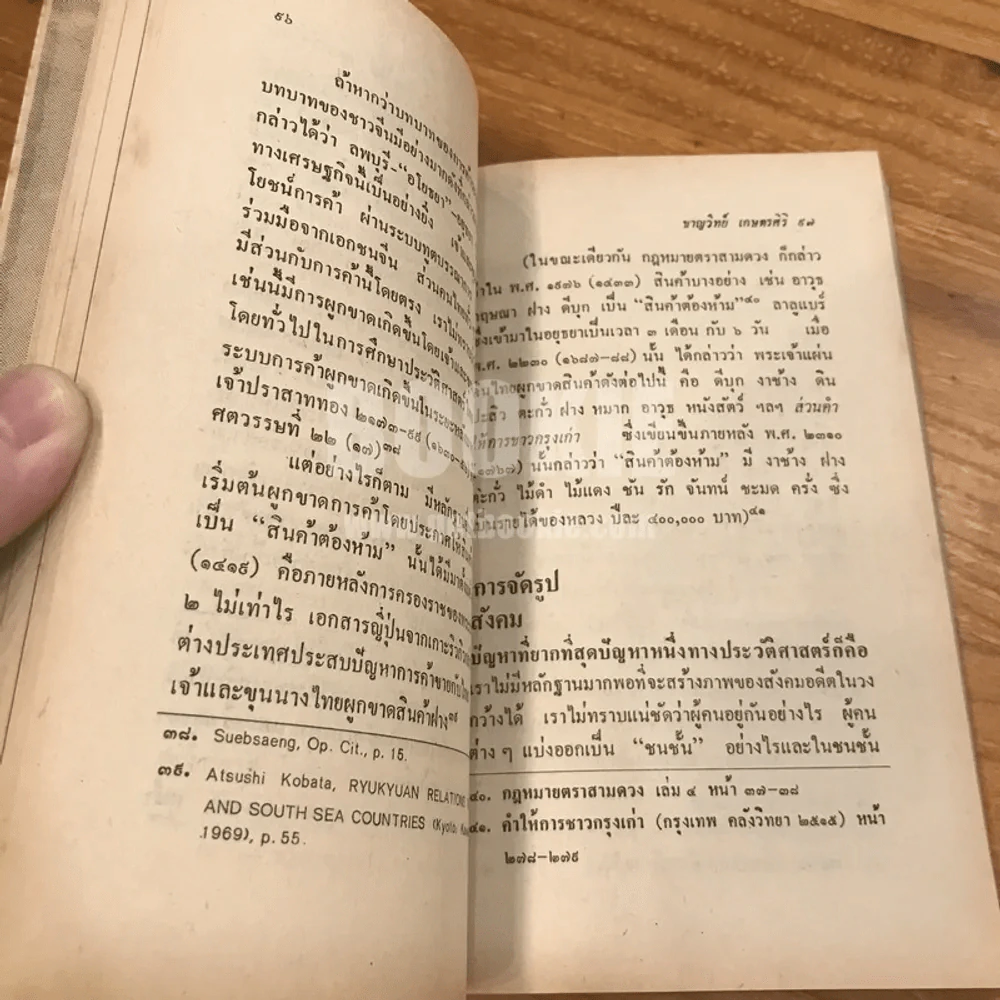 ๙๖
ถ้าหากว่าบทบาทของการค้า
บทบาทของชาวจีนมีอย่างมากดังที่
กล่าวได้ว่า ลพบุรี-“อโยธยา”-อยุธยา
ทางเศรษฐกิจนี้เป็นอย่างยิ่ง
โยชน์การค้า ผ่านระบบทูตบรรณาการ
ร่วมมือจากเอกชนจีน ส่วนคนไทย
มีส่วนกับการค้านี้โดยตรง เราไม่ทราบ
เช่นนี้มีการผูกขาดเกิดขึ้นโดยเจ้าและ
โดยทั่วไปในการศึกษาประวัติศาสตร์
ระบบการค้าผูกขาดเกิดขึ้นในระยะ
เจ้าปราสาททอง ๒๑๗๓-๙๙ (๑๖๓๐-๕๖)
ศตวรรษที่ ๒๒ (๑๗)๓๘
แต่อย่างไรก็ตาม มีหลักฐาน
เริ่มต้นผูกขาดการค้าโดยประกาศให้สินค้า
เป็น “สินค้าต้องห้าม” นั้นได้มีมาตั้งแต่
(๑๔๑๙) คือภายหลังการครองราชของ
๒ ไม่เท่าไร เอกสารญี่ปุ่นจากเกาะริวกิว
ต่างประเทศประสบปัญหาการค้าขายกับไทย
เจ้าและขุนนางไทยผูกขาดสินค้าฝาง๓๙
๓๘. Suebsaeng, Op. Cit., p. 15.
๓๙. Atsushi Kobata, RYUKYUAN RELATIONS
AND SOUTH SEA COUNTRIES (Kyoto:
1969), p. 55.
ชาญวิทย์ เกษตรศิริ ๙๗
(ในขณะเดียวกัน กฎหมายตราสามดวง ก็กล่าว
ว่าใน พ.ศ. ๑๙๗๖ (๑๔๓๓) สินค้าบางอย่าง เช่น อาวุธ
กฤษณา ฝาง ดีบุก เป็น “สินค้าต้องห้าม”๔๐ ลาลูแบร์
ซึ่งเข้ามาในอยุธยาเป็นเวลา ๓ เดือน กับ ๖ วัน เมื่อ
พ.ศ. ๒๒๓๐ (๑๖๘๗-๘๘) นั้น ได้กล่าวว่า พระเจ้าแผ่น
ดินไทยผูกขาดสินค้าดังต่อไปนี้ คือ ดีบุก งาช้าง ดิน
ปะสิว ตะกั่ว ฝาง หมาก อาวุธ หนังสัตว์ ฯลฯ ส่วนคำ
ให้การชาวกรุงเก่า ซึ่งเขียนขึ้นภายหลัง พ.ศ. ๒๓๑๐
(๑๗๖๗) นั้นกล่าวว่า “สินค้าต้องห้าม” มี งาช้าง ฝาง
ตะกั่ว ไม้ดำ ไม้แดง ชัน รัก จันทน์ ชะมด ครั่ง ซึ่ง
เป็นรายได้ของหลวง ปีละ ๔๐๐,๐๐๐ บาท)๔๑
การจัดรูป
สังคม
ปัญหาที่ยากที่สุดปัญหาหนึ่งทางประวัติศาสตร์ก็คือ
เราไม่มีหลักฐานมากพอที่จะสร้างภาพของสังคมอดีตในวง
กว้างได้ เราไม่ทราบแน่ชัดว่าผู้คนอยู่กันอย่างไร ผู้คน
ต่าง ๆ แบ่งออกเป็น “ชนชั้น” อย่างไรและในชนชั้น
๔๐. กฎหมายตราสามดวง เล่ม ๔ หน้า ๓๗-๓๘
๔๑. คำให้การชาวกรุงเก่า (กรุงเทพ คลังวิทยา ๒๕๑๕) หน้า
๒๗๘-๒๗๙